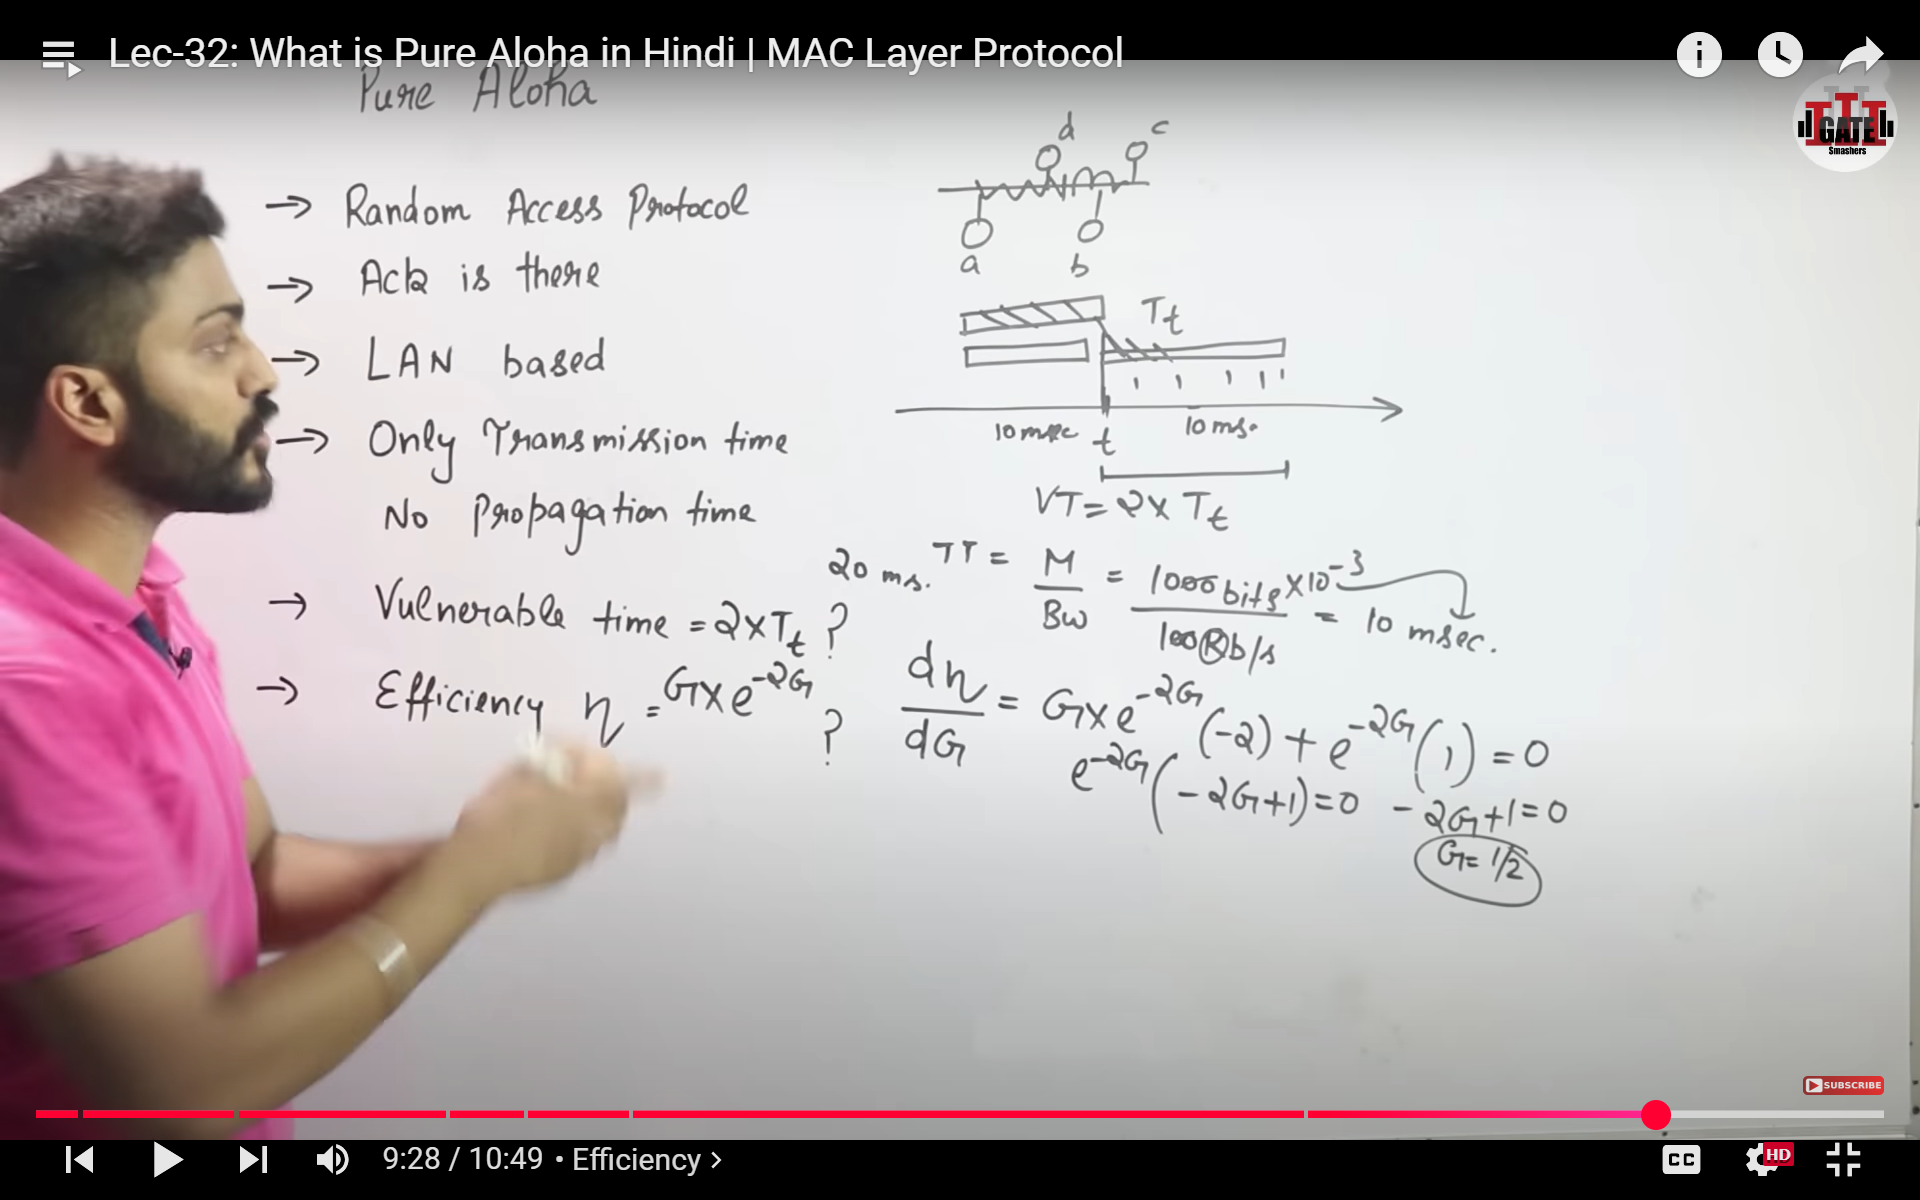 Lec-32: What is Pure Aloha in Hindi | MAC Layer Protocol
Pure Aloha
GATE
Smashers
→ Random Access Protocol
→ Ack is there
→ LAN based
→ Only Transmission time
No Propagation time
→ Vulnerable time = 2×Tt ?
→ Efficiency η = G×e^-2G ?
d c
a b
Tt
10 msec t 10 ms.
VT = 2× Tt
20 ms. TT = M/Bw = 1000 bits ×10^-3 / 100Kb/s = 10 msec.
dη/dG = G×e^-2G (-2) + e^-2G (1) = 0
e^-2G (-2G+1) = 0 -2G+1 = 0
G = 1/2
SUBSCRIBE
9:28 / 10:49 • Efficiency >
CC
HD